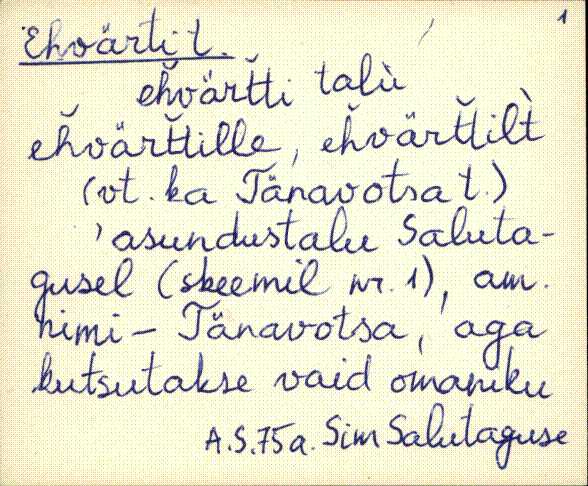 1
Ehvärti t.
eh̆värt̆ti talù
eh̆värt̆tille, eh̆värt̆tilt̀
(vt. ka Tänavotsa t.)
'asundustalu Saluta-
gusel (skeemil nr. 1), am.
nimi - Tänavotsa, aga
kutsutakse vaid omaniku
A.S.75a. Sim Salutaguse